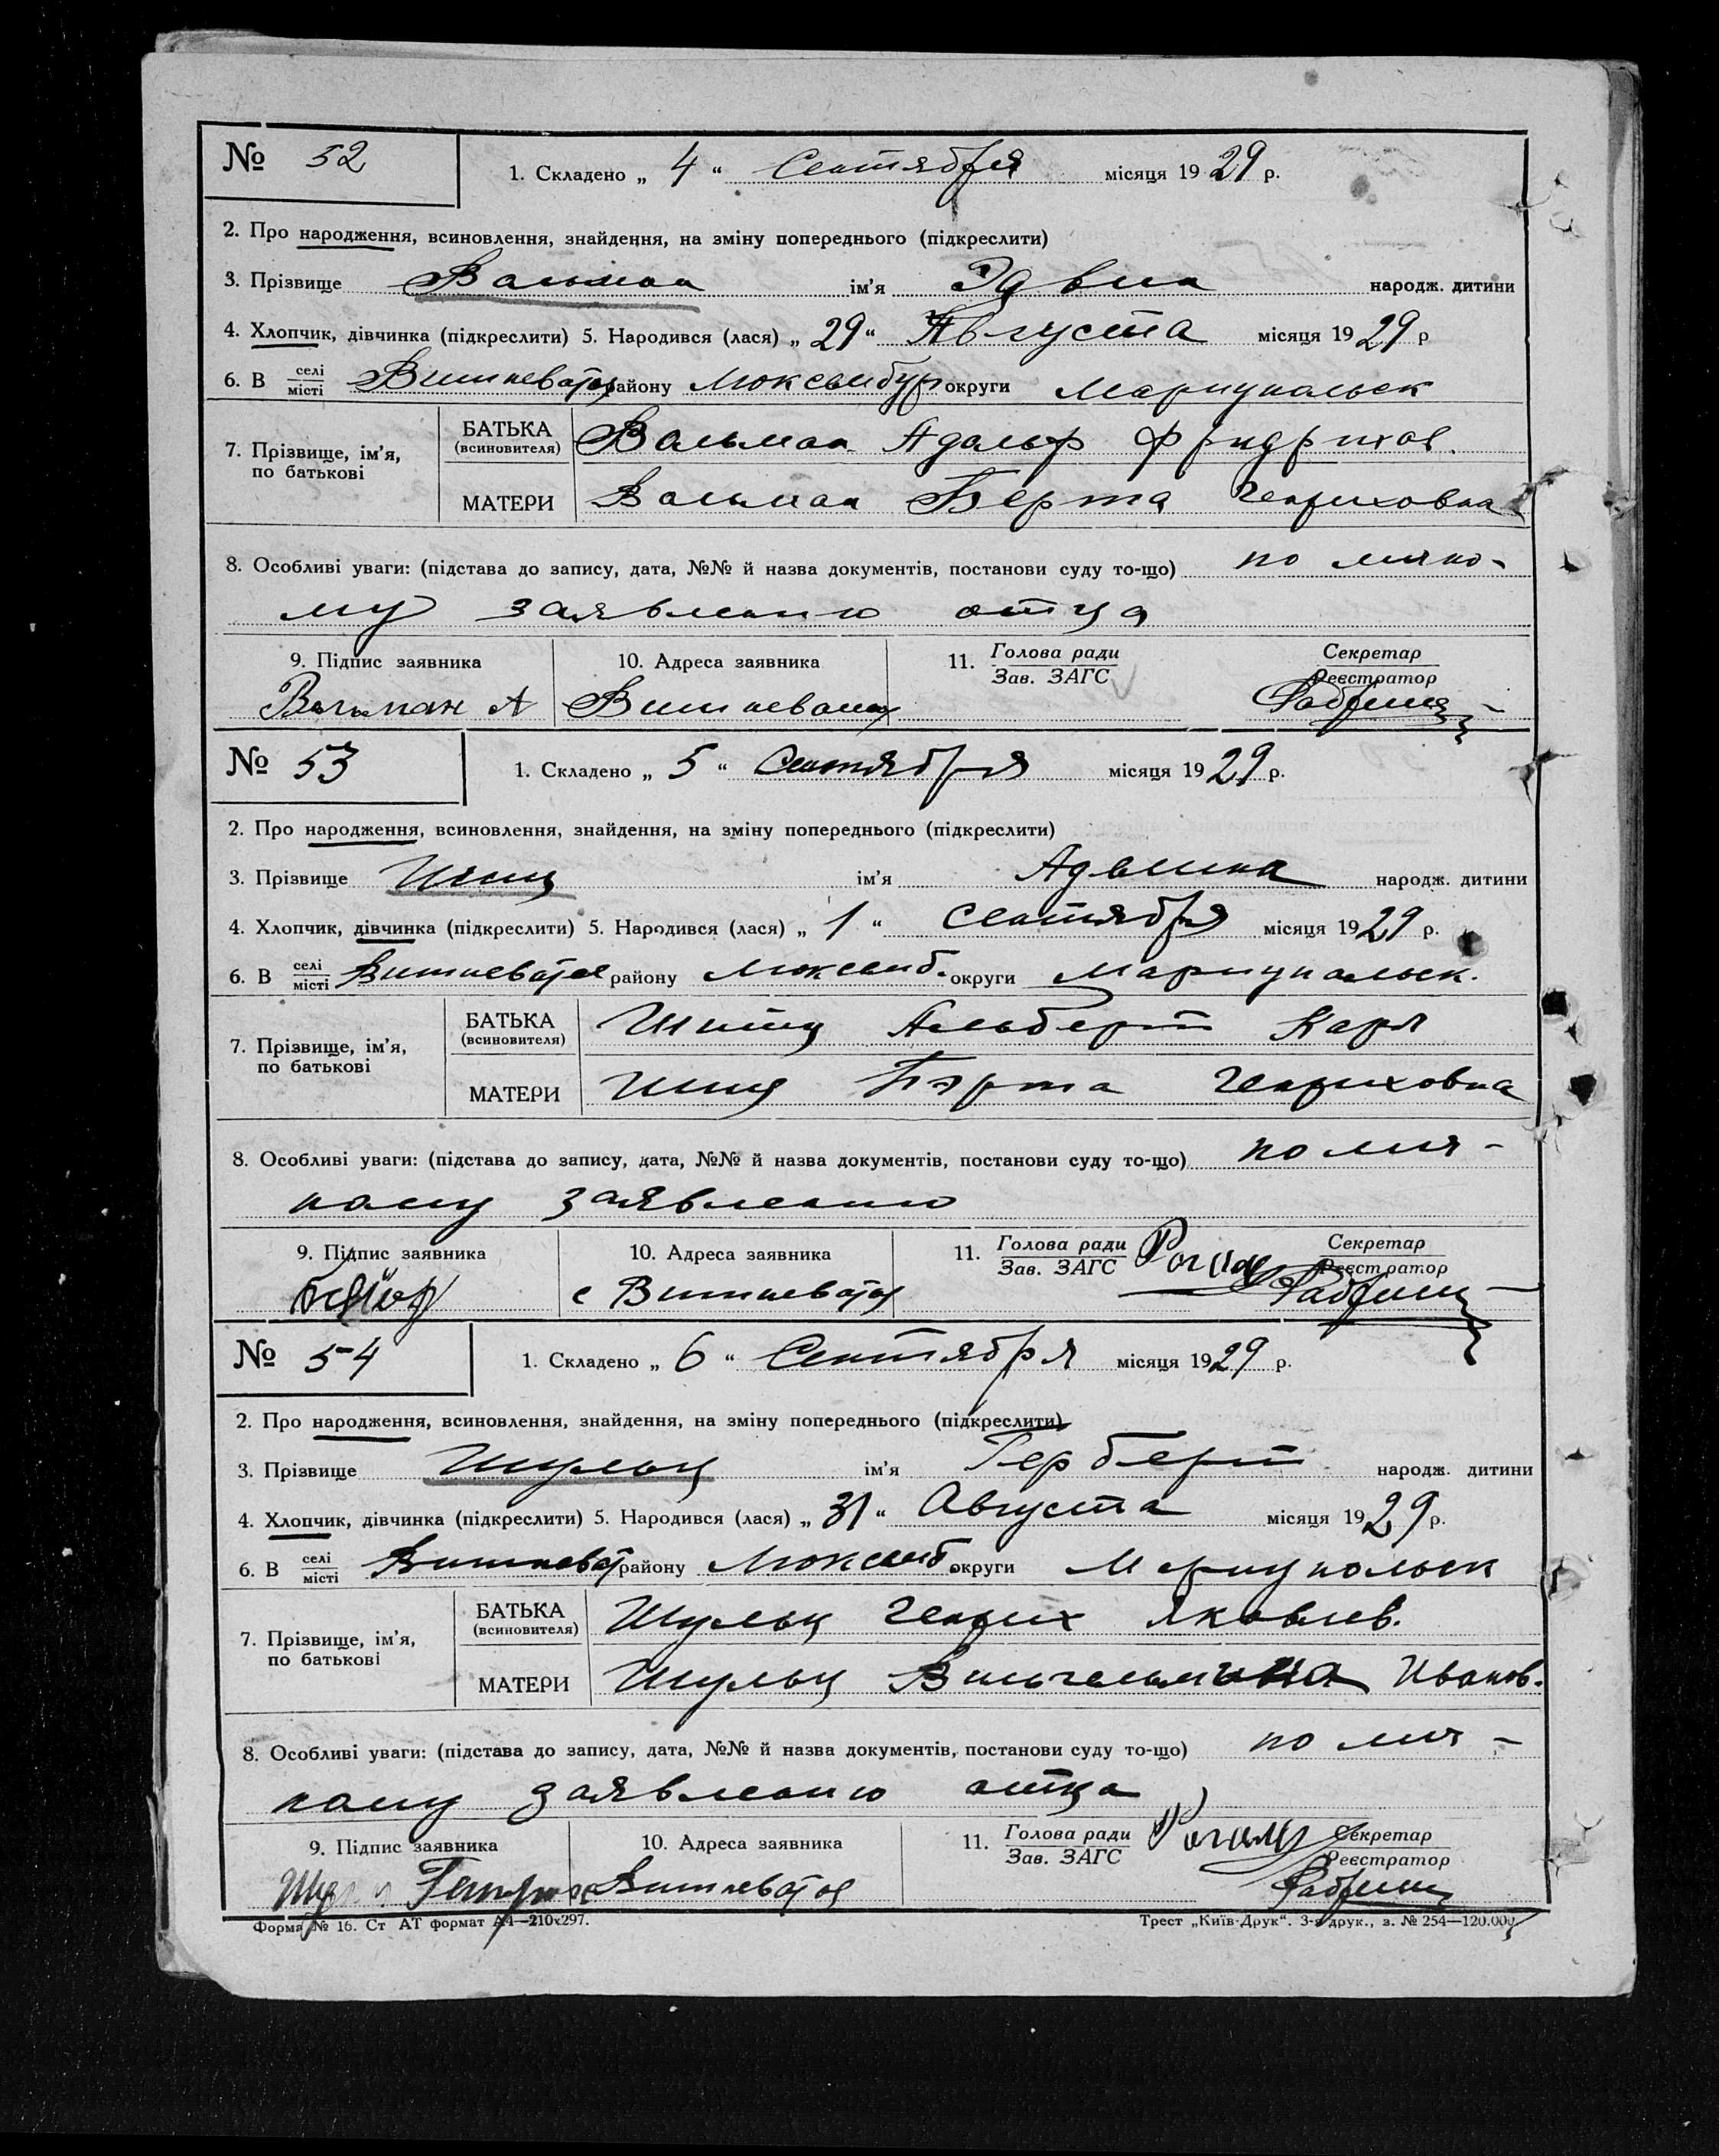 № 52
1. Складено „ 4 “ Сентября місяця 1929 р.
2. Про народження, всиновлення, знайдення, на зміну попереднього (підкреслити)
3. Прізвище Вальман ім'я Эдвин народж. дитини
4. Хлопчик, дівчинка (підкреслити) 5. Народився (лася) „ 29 “ Августа місяця 1929 р
6. В селі/місті Вишневатая району Люксембур округи Мариупольск
7. Прізвище, ім'я, по батькові
БАТЬКА (всиновителя) Вальман Адольф Фридрихов.
МАТЕРИ Вальман Берта Генриховна
8. Особливі уваги: (підстава до запису, дата, №№ й назва документів, постанови суду то-що) по лично-
му заявлению отца
9. Підпис заявника 10. Адреса заявника 11. Голова ради/Зав. ЗАГС Секретар/Реєстратор
Вальман А Вишневатая
№ 53
1. Складено „ 5 “ Сентября місяця 1929 р.
2. Про народження, всиновлення, знайдення, на зміну попереднього (підкреслити)
3. Прізвище ім'я народж. дитини
4. Хлопчик, дівчинка (підкреслити) 5. Народився (лася) „ 1 “ Сентября місяця 1929 р.
6. В селі/місті Вишневатая району Люксемб. округи Мариупольск.
7. Прізвище, ім'я, по батькові
БАТЬКА (всиновителя) Альберт Карл
МАТЕРИ Берта Генриховна
8. Особливі уваги: (підстава до запису, дата, №№ й назва документів, постанови суду то-що) по лич-
ному заявлению
9. Підпис заявника 10. Адреса заявника 11. Голова ради/Зав. ЗАГС Секретар/Реєстратор
с Вишневатая
№ 54
1. Складено „ 6 “ Сентября місяця 1929 р.
2. Про народження, всиновлення, знайдення, на зміну попереднього (підкреслити)
3. Прізвище Шульц ім'я Герберт народж. дитини
4. Хлопчик, дівчинка (підкреслити) 5. Народився (лася) „ 31 “ Августа місяця 1929 р.
6. В селі/місті Вишневат району Люксемб. округи Мариупольск
7. Прізвище, ім'я, по батькові
БАТЬКА (всиновителя) Шульц Генрих Яковлев.
МАТЕРИ Шульц Вильгельмина Иванов.
8. Особливі уваги: (підстава до запису, дата, №№ й назва документів, постанови суду то-що) по лич-
ному заявлению отца
9. Підпис заявника 10. Адреса заявника 11. Голова ради/Зав. ЗАГС Секретар/Реєстратор
Генрих Вишневатая
Форма № 16. Ст АТ формат А4—210х297. Трест „Київ-Друк“. 3-я друк., з. № 254—120.000